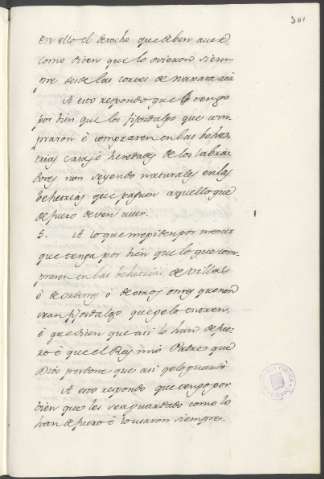 301
en ello el derecho que deben aver
como bien que lo ovieron siem-
pre desde las cortes de Naxara acá
A esto respondo que tengo
por bien que los fijosdalgo que com-
praron ó compraren en las behe-
trias casas é heredades de los labra-
dores non seyendo naturales en las
behetrias que pasen aquello que
de fuero deven aver.
5. A lo que me piden por merced
que tenga por bien que lo que com-
praren en las behetrias de
ó de ó de otros omes que non
sean fijosdalgo que gelo
ó que dicen que asi lo han de fue-
ro é que el Rey mio Padre que
Dios perdone que asi gelo guardó
A esto respondo que tengo por
bien que les sea guardado como lo
han de fuero é lo usaron siempre.